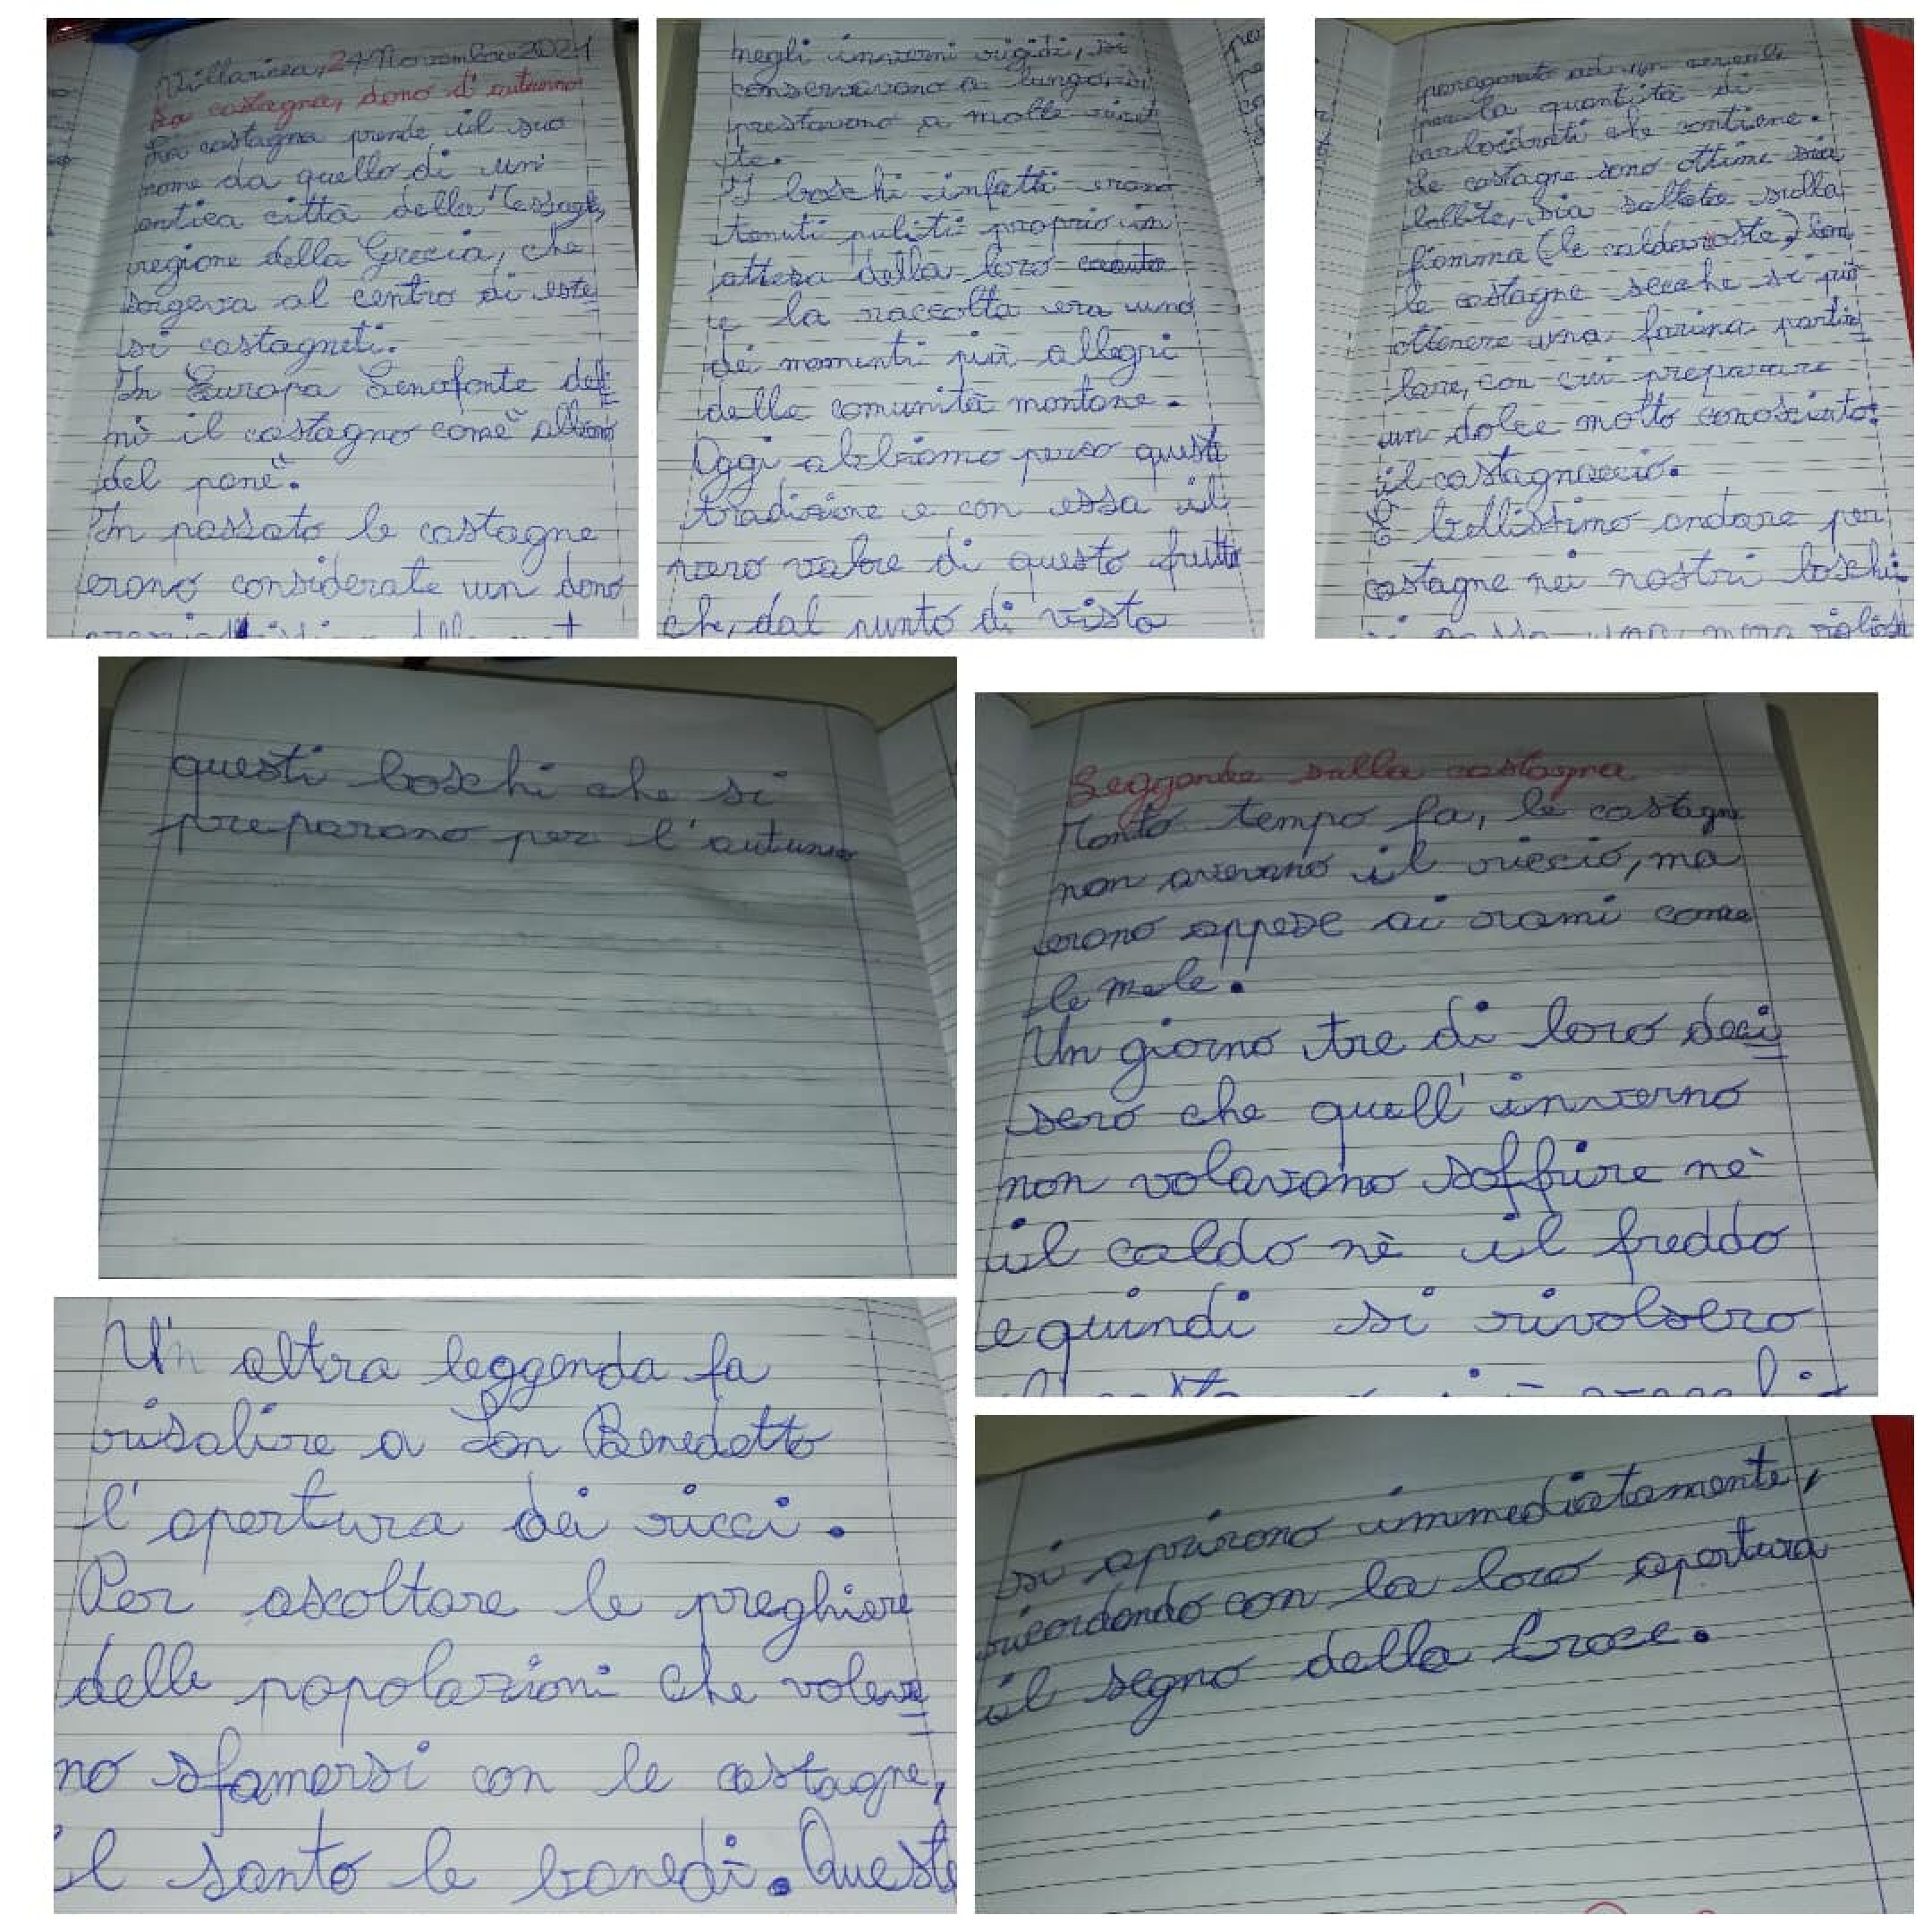 Villaricca, 24 Novembre 2021
La castagna, dono d'autunno
La castagna prende il suo
nome da quello di un'
antica città della Tessagli,
regione della Grecia, che
sorgeva al centro di este
si castagneti.
In Europa Senofonte defi
nì il castagno come "albero
del pane".
In passato le castagne
erano considerate un dono
negli inverni rigidi, si
conservavano a lungo, si
prestavano a molte ricet
te.
I boschi infatti erano
tenuti puliti proprio in
attesa della loro caduta
e la raccolta era uno
dei momenti più allegri
delle comunità montane.
Oggi abbiamo perso questa
tradizione e con essa il
vero valore di questo frutto
che, dal punto di vista
paragonato ad un cereale
per la quantità di
carboidrati che contiene.
Le castagne sono ottime sia
bollite, sia saltate sulla
fiamma (le caldarroste) Con
le castagne secche si può
ottenere una farina partico
lare, con cui preparare
un dolce molto conosciuto:
il castagnaccio.
È bellissimo andare per
castagne nei nostri boschi.
questi boschi che si
preparano per l'autunno
Leggende sulla castagna
Tanto tempo fa, le castagne
non avevano il riccio, ma
erano appese ai rami come
le mele.
Un giorno tre di loro deci
sero che quell'inverno
non volavano soffrire nè
il caldo nè il freddo
e quindi si rivolsero
Un'altra leggenda fa
risalire a San Benedetto
l'apertura dei ricci.
Per ascoltare le preghiere
delle popolazioni che voleva
no sfamarsi con le castagne,
il santo le benedì. Queste
si aprirono immediatamente,
ricordando con la loro apertura
il segno della Croce.